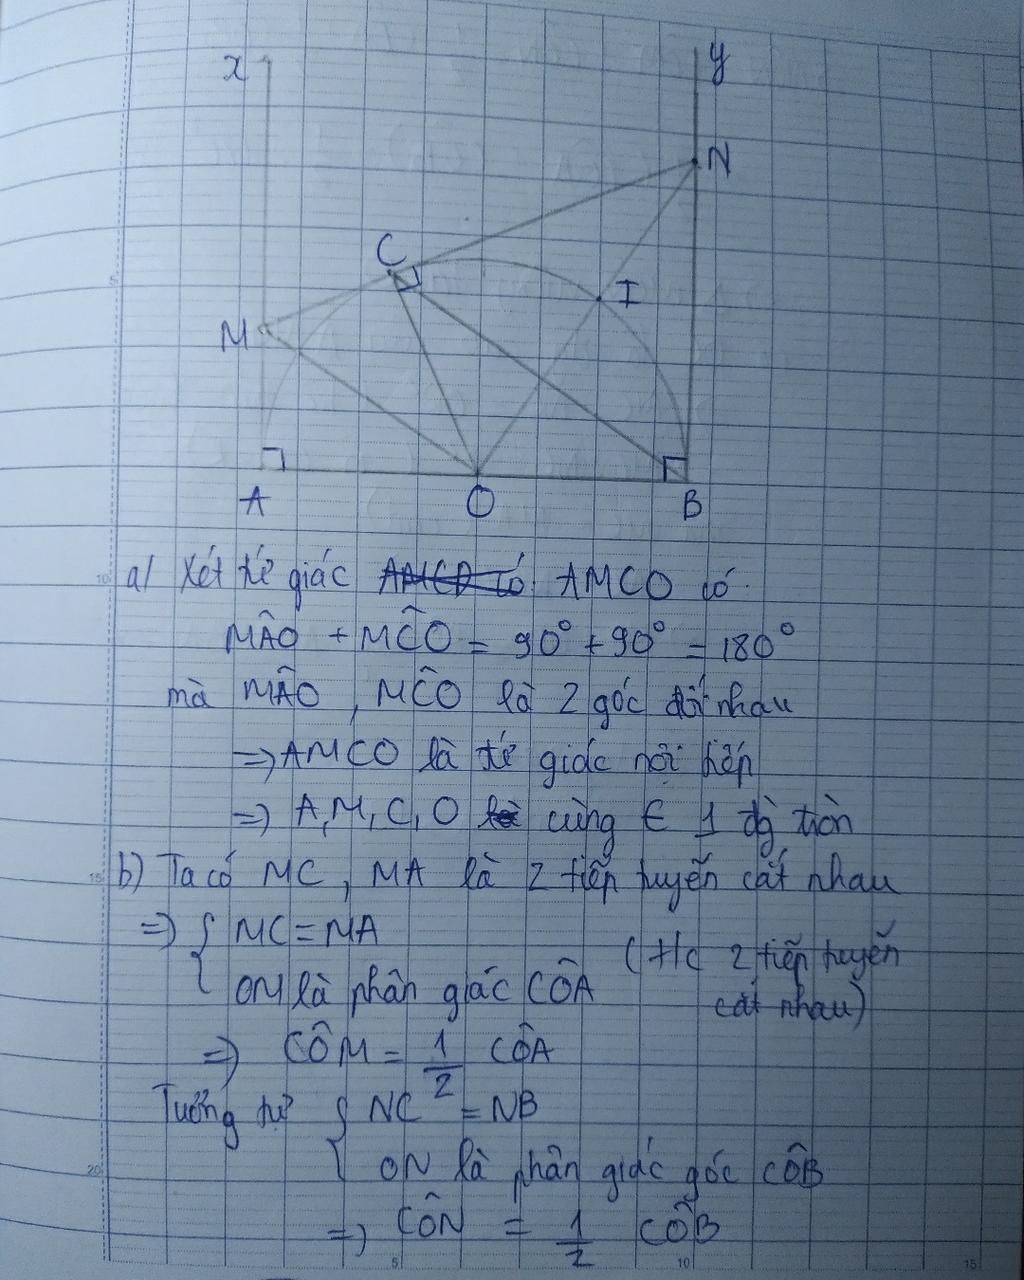 x
y
N
C
I
M
A
O
B
a) Xét tứ giác AMCO có
MÂO + MĈO = 90° + 90° = 180°
mà MÂO, MĈO là 2 góc đối nhau
=> AMCO là tứ giác nội tiếp
=> A, M, C, O cùng ∈ 1 đg tròn
b) Ta có MC, MA là 2 tiếp tuyến cắt nhau
=> { MC = MA
OM là phân giác CÔA (t/c 2 tiếp tuyến
cắt nhau)
=> CÔM = 1/2 CÔA
Tương tự { NC = NB
ON là phân giác góc CÔB
=> CÔN = 1/2 CÔB
10
15
20
5
10
15